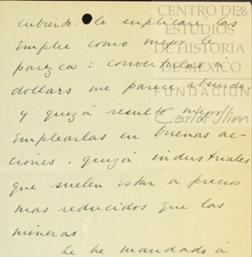 CENTRO DE
ESTUDIOS
DE HISTORIA
DE MEXICO
FUNDACIÓN
Carlos Slim
cubierto. le suplicaré las
emplee como mejor le
parezca: convertirlas á
dollars me parece absurdo
y quizá resulte mejor
emplearlas en buenas ac-
ciones. quizá industriales
que suelen estar a precios
mas reducidos que las
mineras.
Le he mandado á